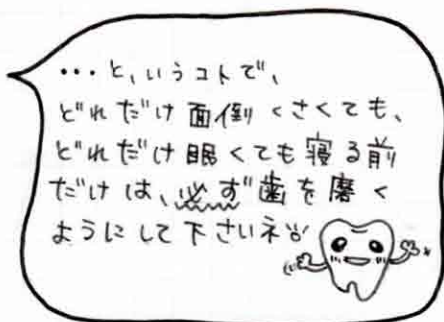 ・・・と、いうコトで、
どれだけ面倒くさくても、
どれだけ眠くても寝る前
だけは、必ず歯を磨く
ようにして下さいネ!!